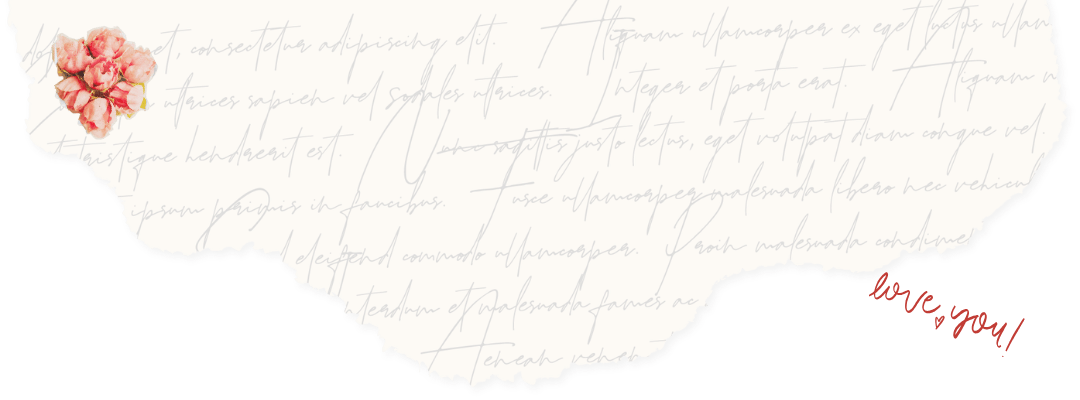 et, consectetur adipiscing elit. Aliquam ullamcorper ex eget luctus ullam
ultrices sapien vel sodales ultrices. Integer et porta erat. Aliquam
tristique hendrerit est. Nunc sagittis justo lectus, eget volutpat diam congue vel.
ipsum primis in faucibus. Fusce ullamcorper malesuada libero nec vehicu
eleifend commodo ullamcorper. Proin malesuada condime
nterdum et malesuada fames ac
Aenean vehen
love you!